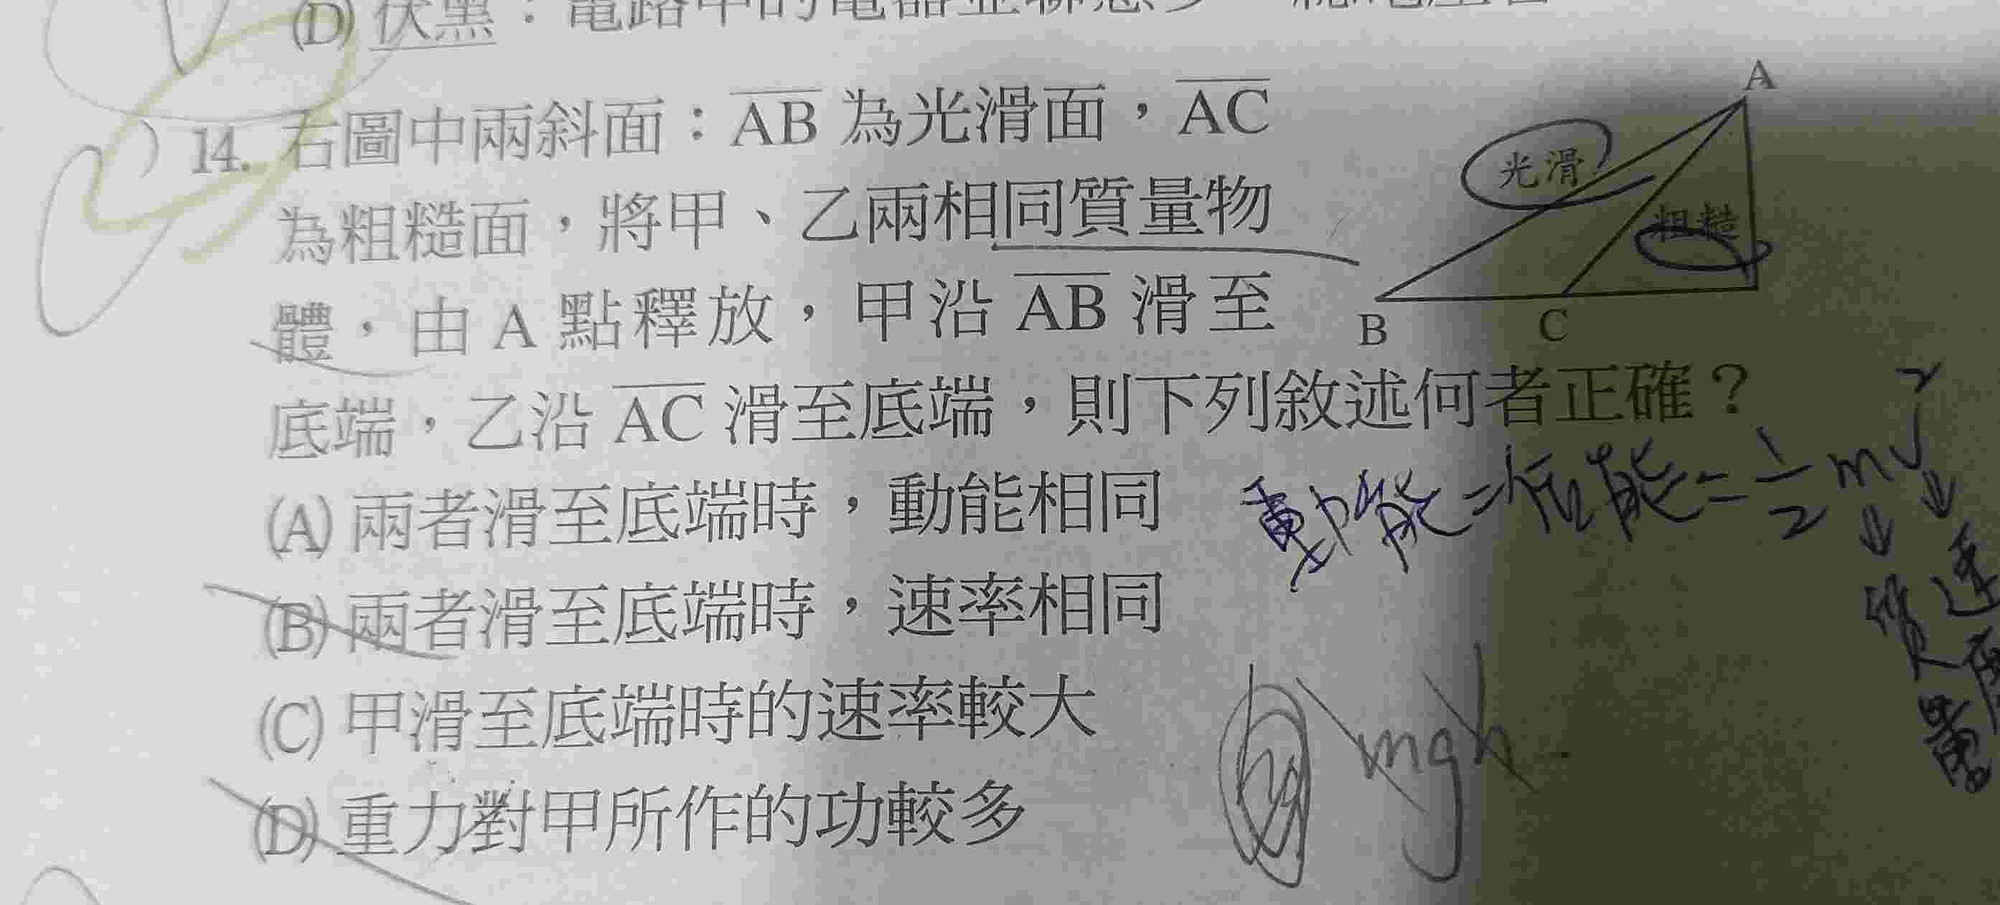 (D) 伏黑：電路中的電器並聯愈多
14. 右圖中兩斜面：AB 為光滑面，AC
為粗糙面，將甲、乙兩相同質量物
體，由 A 點釋放，甲沿 AB 滑至
底端，乙沿 AC 滑至底端，則下列敘述何者正確？
(A) 兩者滑至底端時，動能相同
(B) 兩者滑至底端時，速率相同
(C) 甲滑至底端時的速率較大
(D) 重力對甲所作的功較多
A
光滑
粗糙
B
C
動能=位能=1/2 mv²
質量
速度
mgh